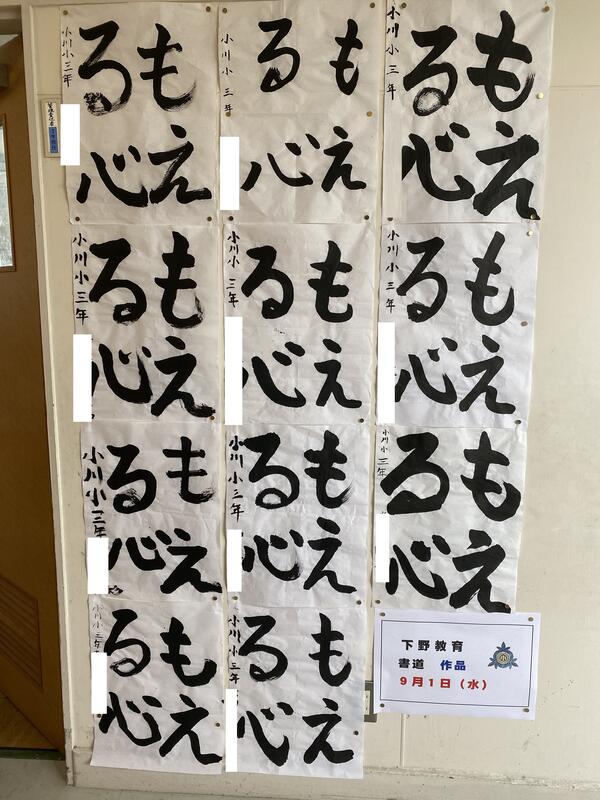 もえ
る心
小川小三年
もえ
る心
小川小三年
もえ
る心
小川小三年
もえ
る心
小川小三年
もえ
る心
小川小三年
もえ
る心
小川小三年
もえ
る心
小川小三年
もえ
る心
小川小三年
もえ
る心
小川小三年
もえ
る心
小川小三年
もえ
る心
小川小三年
下野教育
書道 作品
9月1日（水）
小